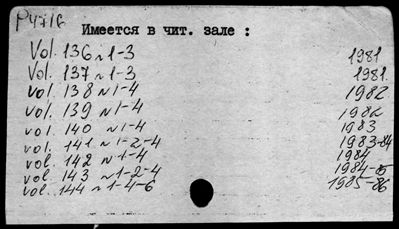 P4716
Имеется в чит. зале :
Vol. 136 n 1-3 1981
Vol. 137 n 1-3 1981.
vol. 138 n 1-4 1982
vol. 139 n 1-4 1982
vol. 140 n 1-4 1983
vol. 141 n 1-2-4 1983-84
vol. 142 n 1-4 1984
vol. 143 n 1-2-4 1984-85
vol. 144 n 1-4-6 1985-86